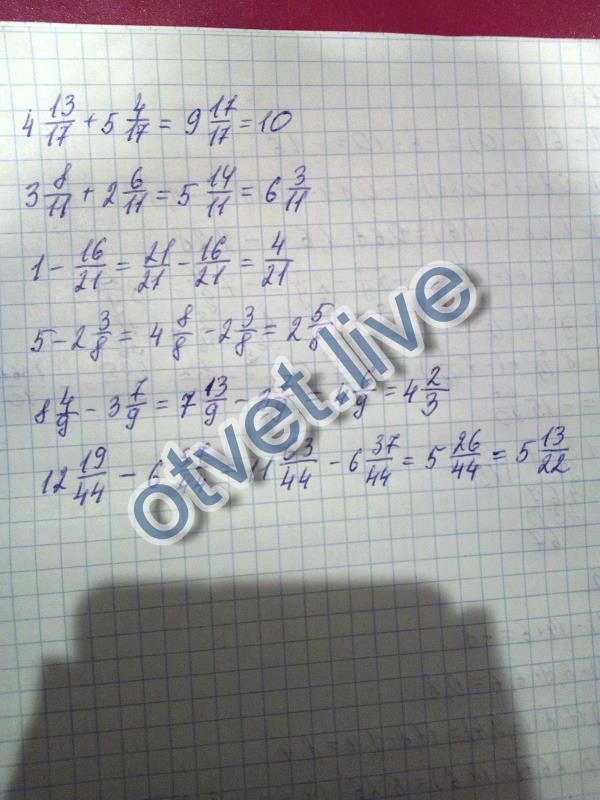 4 13/17 + 5 4/17 = 9 17/17 = 10
3 8/11 + 2 6/11 = 5 14/11 = 6 3/11
1 - 16/21 = 21/21 - 16/21 = 4/21
5 - 2 3/8 = 4 8/8 - 2 3/8 = 2 5/8
8 4/9 - 3 7/9 = 7 13/9 - = 4 6/9 = 4 2/3
12 19/44 - 6 11 63/44 - 6 37/44 = 5 26/44 = 5 13/22
otvet.live